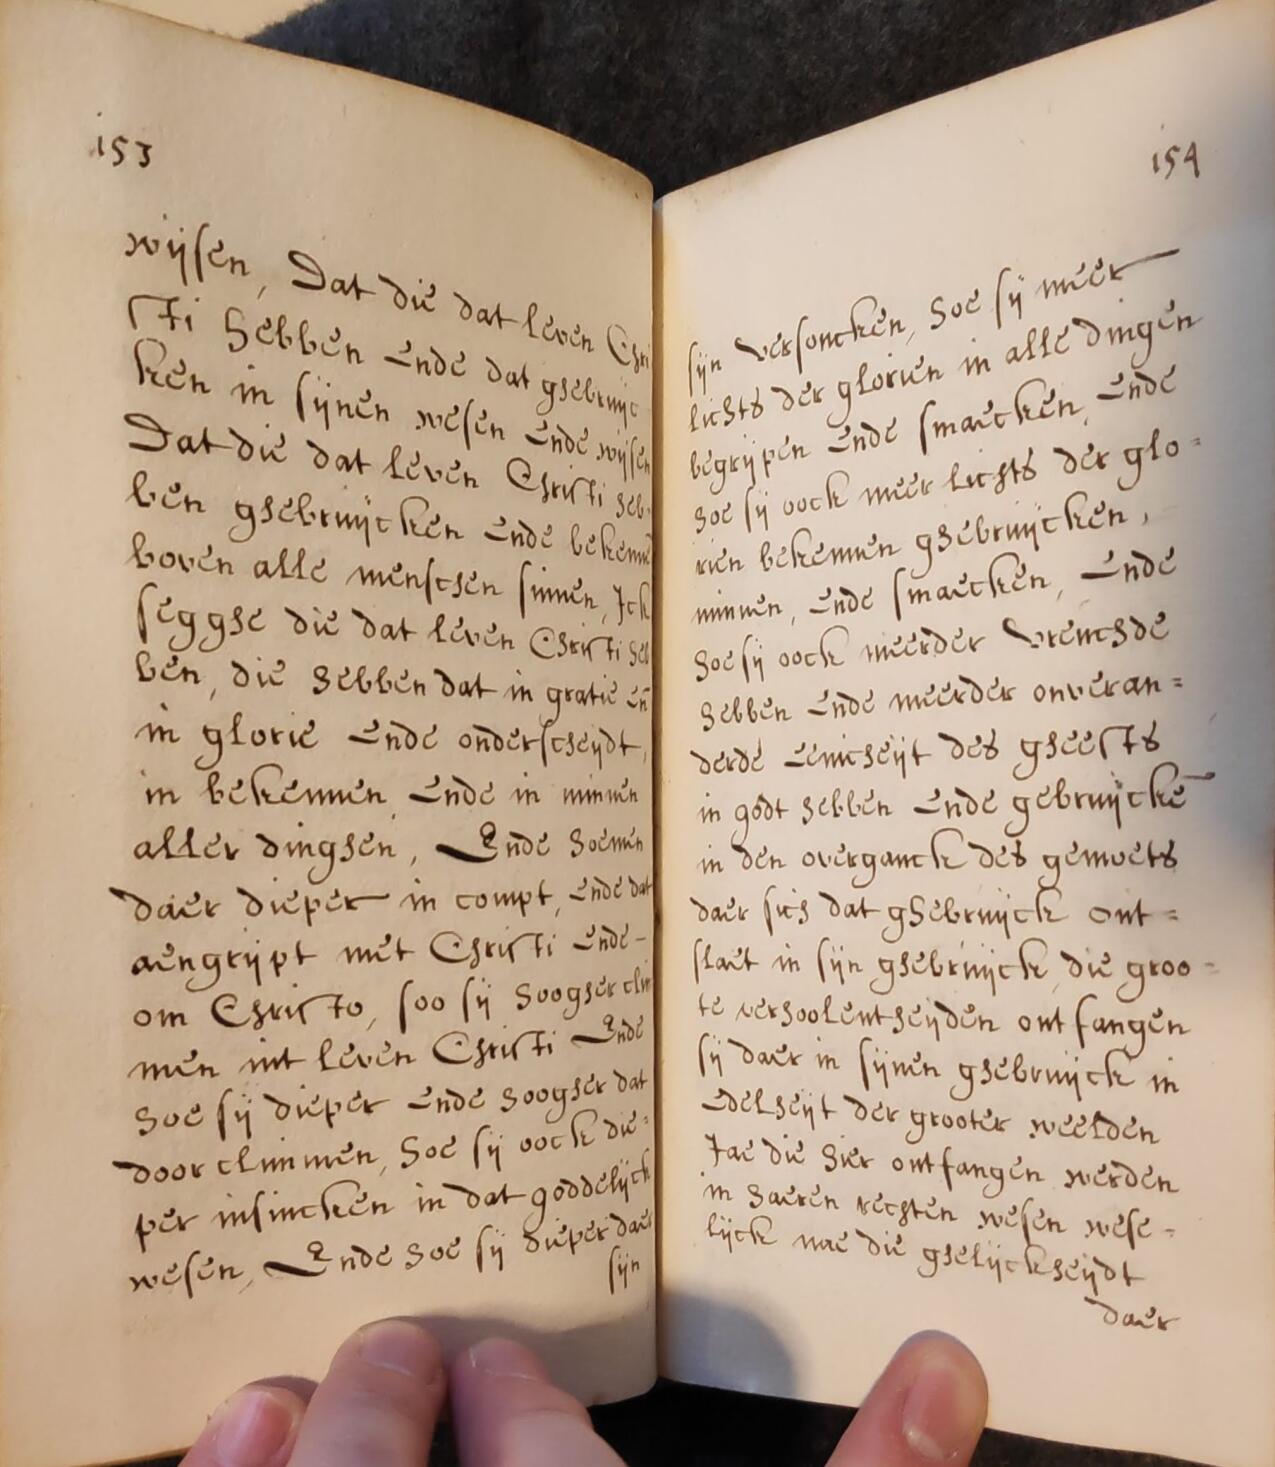 153
wijsen, Dat die dat leven Chri
sti hebben ende dat ghebruijc
ken in sijnen wesen ende wijsen
Dat die dat leven Christi heb
ben ghebruijcken ende bekenne
boven alle menschen sinnen, Ick
segghe die dat leven Christi heb
ben, die hebben dat in gratie eñ
in glorie ende onderscheijdt,
in bekennen ende in minnen
aller dinghen, Ende hoemen
daer dieper in compt, ende dat
aengrijpt met Christi ende-
om Christo, soo sij hoogher clim
men int leven Christi Ende
hoe sij dieper ende hoogher dat
doorclimmen, hoe sij oock die=
per insincken in dat goddelijck
wesen, Ende hoe sij dieper daer
sijn
154
sijn versoncken, hoe sij meer
lichts der glorien in alle dingen
begrijpen ende smaecken, ende
hoe sij oock meer lichts der glo=
rien bekennen ghebruijcken,
minnen, ende smaecken, Ende
hoe sij oock meerder vreuchde
hebben ende meerder onveran=
derde eenicheijt des gheests
in godt hebben ende gebruijckē
in den overganck des gemoets
daer sich dat ghebruijck ont=
slaet in sijn ghebruijck, die groo=
te verhoolentheijden ontfangen
sij daer in sijnen ghebruijck in
Edelheijt der grooter weelden
Jae die hier ontfangen werden
in haeren rechten wesen wese=
lijck nae die ghelijckheijdt
daer